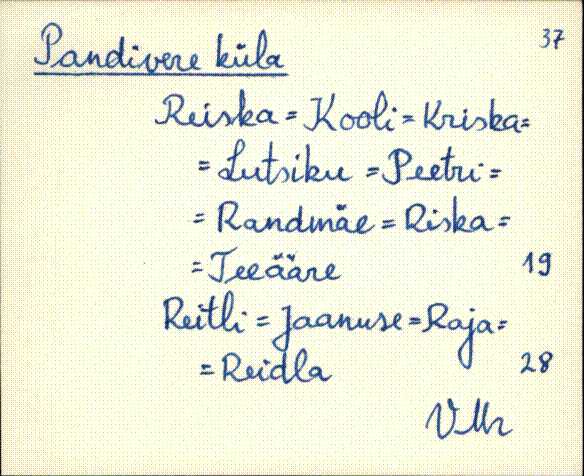 37
Pandivere küla
Reiska = Kooli = Kriska =
= Lutsiku = Peetri =
= Randmäe = Riska =
= Teeääre 19
Reitli = Jaanuse = Raja =
= Reidla 28
VMr